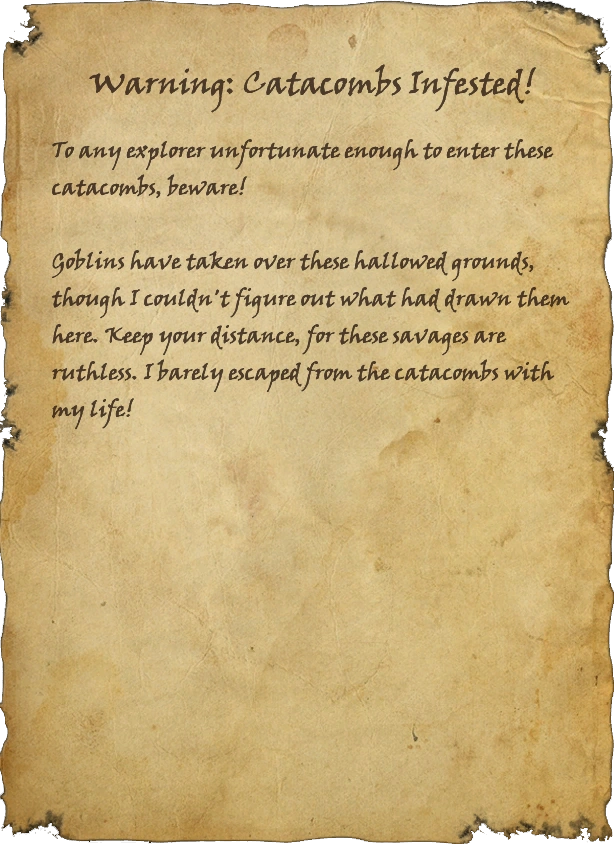 Warning: Catacombs Infested!
To any explorer unfortunate enough to enter these
catacombs, beware!
Goblins have taken over these hallowed grounds,
though I couldn't figure out what had drawn them
here. Keep your distance, for these savages are
ruthless. I barely escaped from the catacombs with
my life!